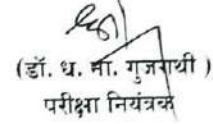 (डॉ. ध. ना. गुजराथी )
परीक्षा नियंत्रक